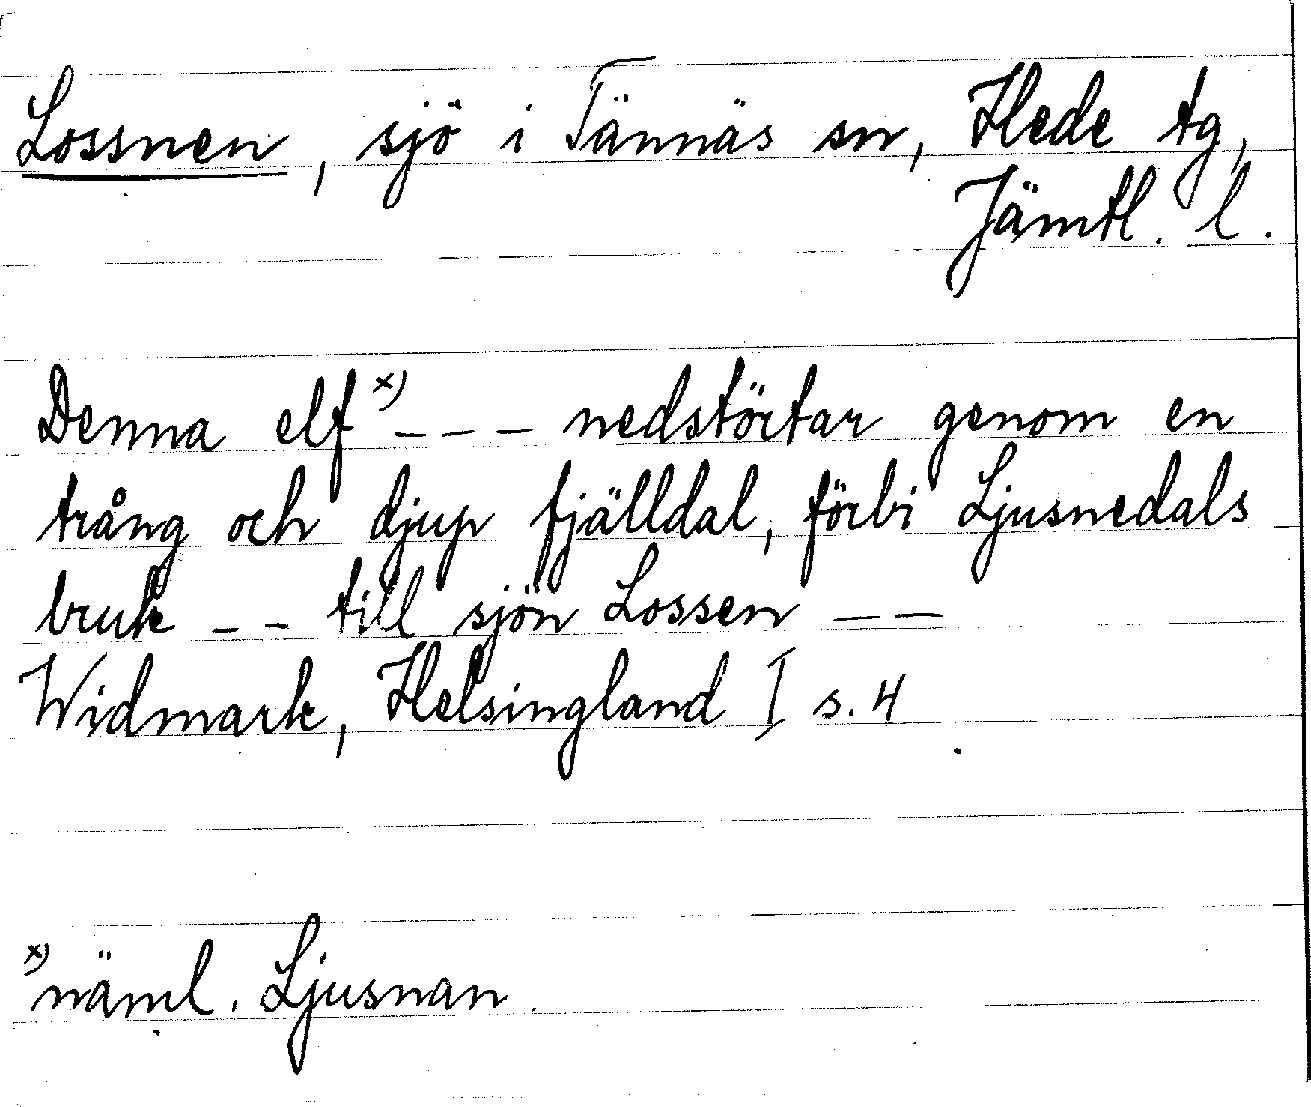 Lossnen, sjö i Tännäs sn, Hede tg,
Jämtl. l.
Denna elf x) _ _ _ nedstörtar genom en
trång och djup fjälldal, förbi Ljusnedals
bruk _ _ till sjön Lossen _ _
Widmark, Helsingland I s. 4
x) näml. Ljusnan.